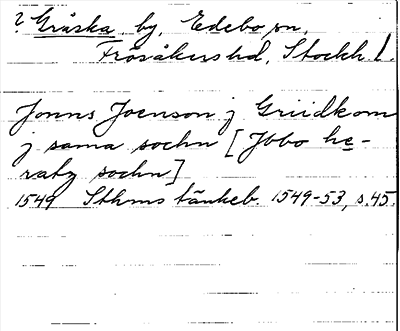 ? Gråska, by, Edebo sn,
Frösåkers hd, Stockh. l.
Jonns Joenson j Griidkom
j sama sochn [Jbbo he-
ratz sochn]
1549 Sthms tänkeb. 1549-53, s.45.